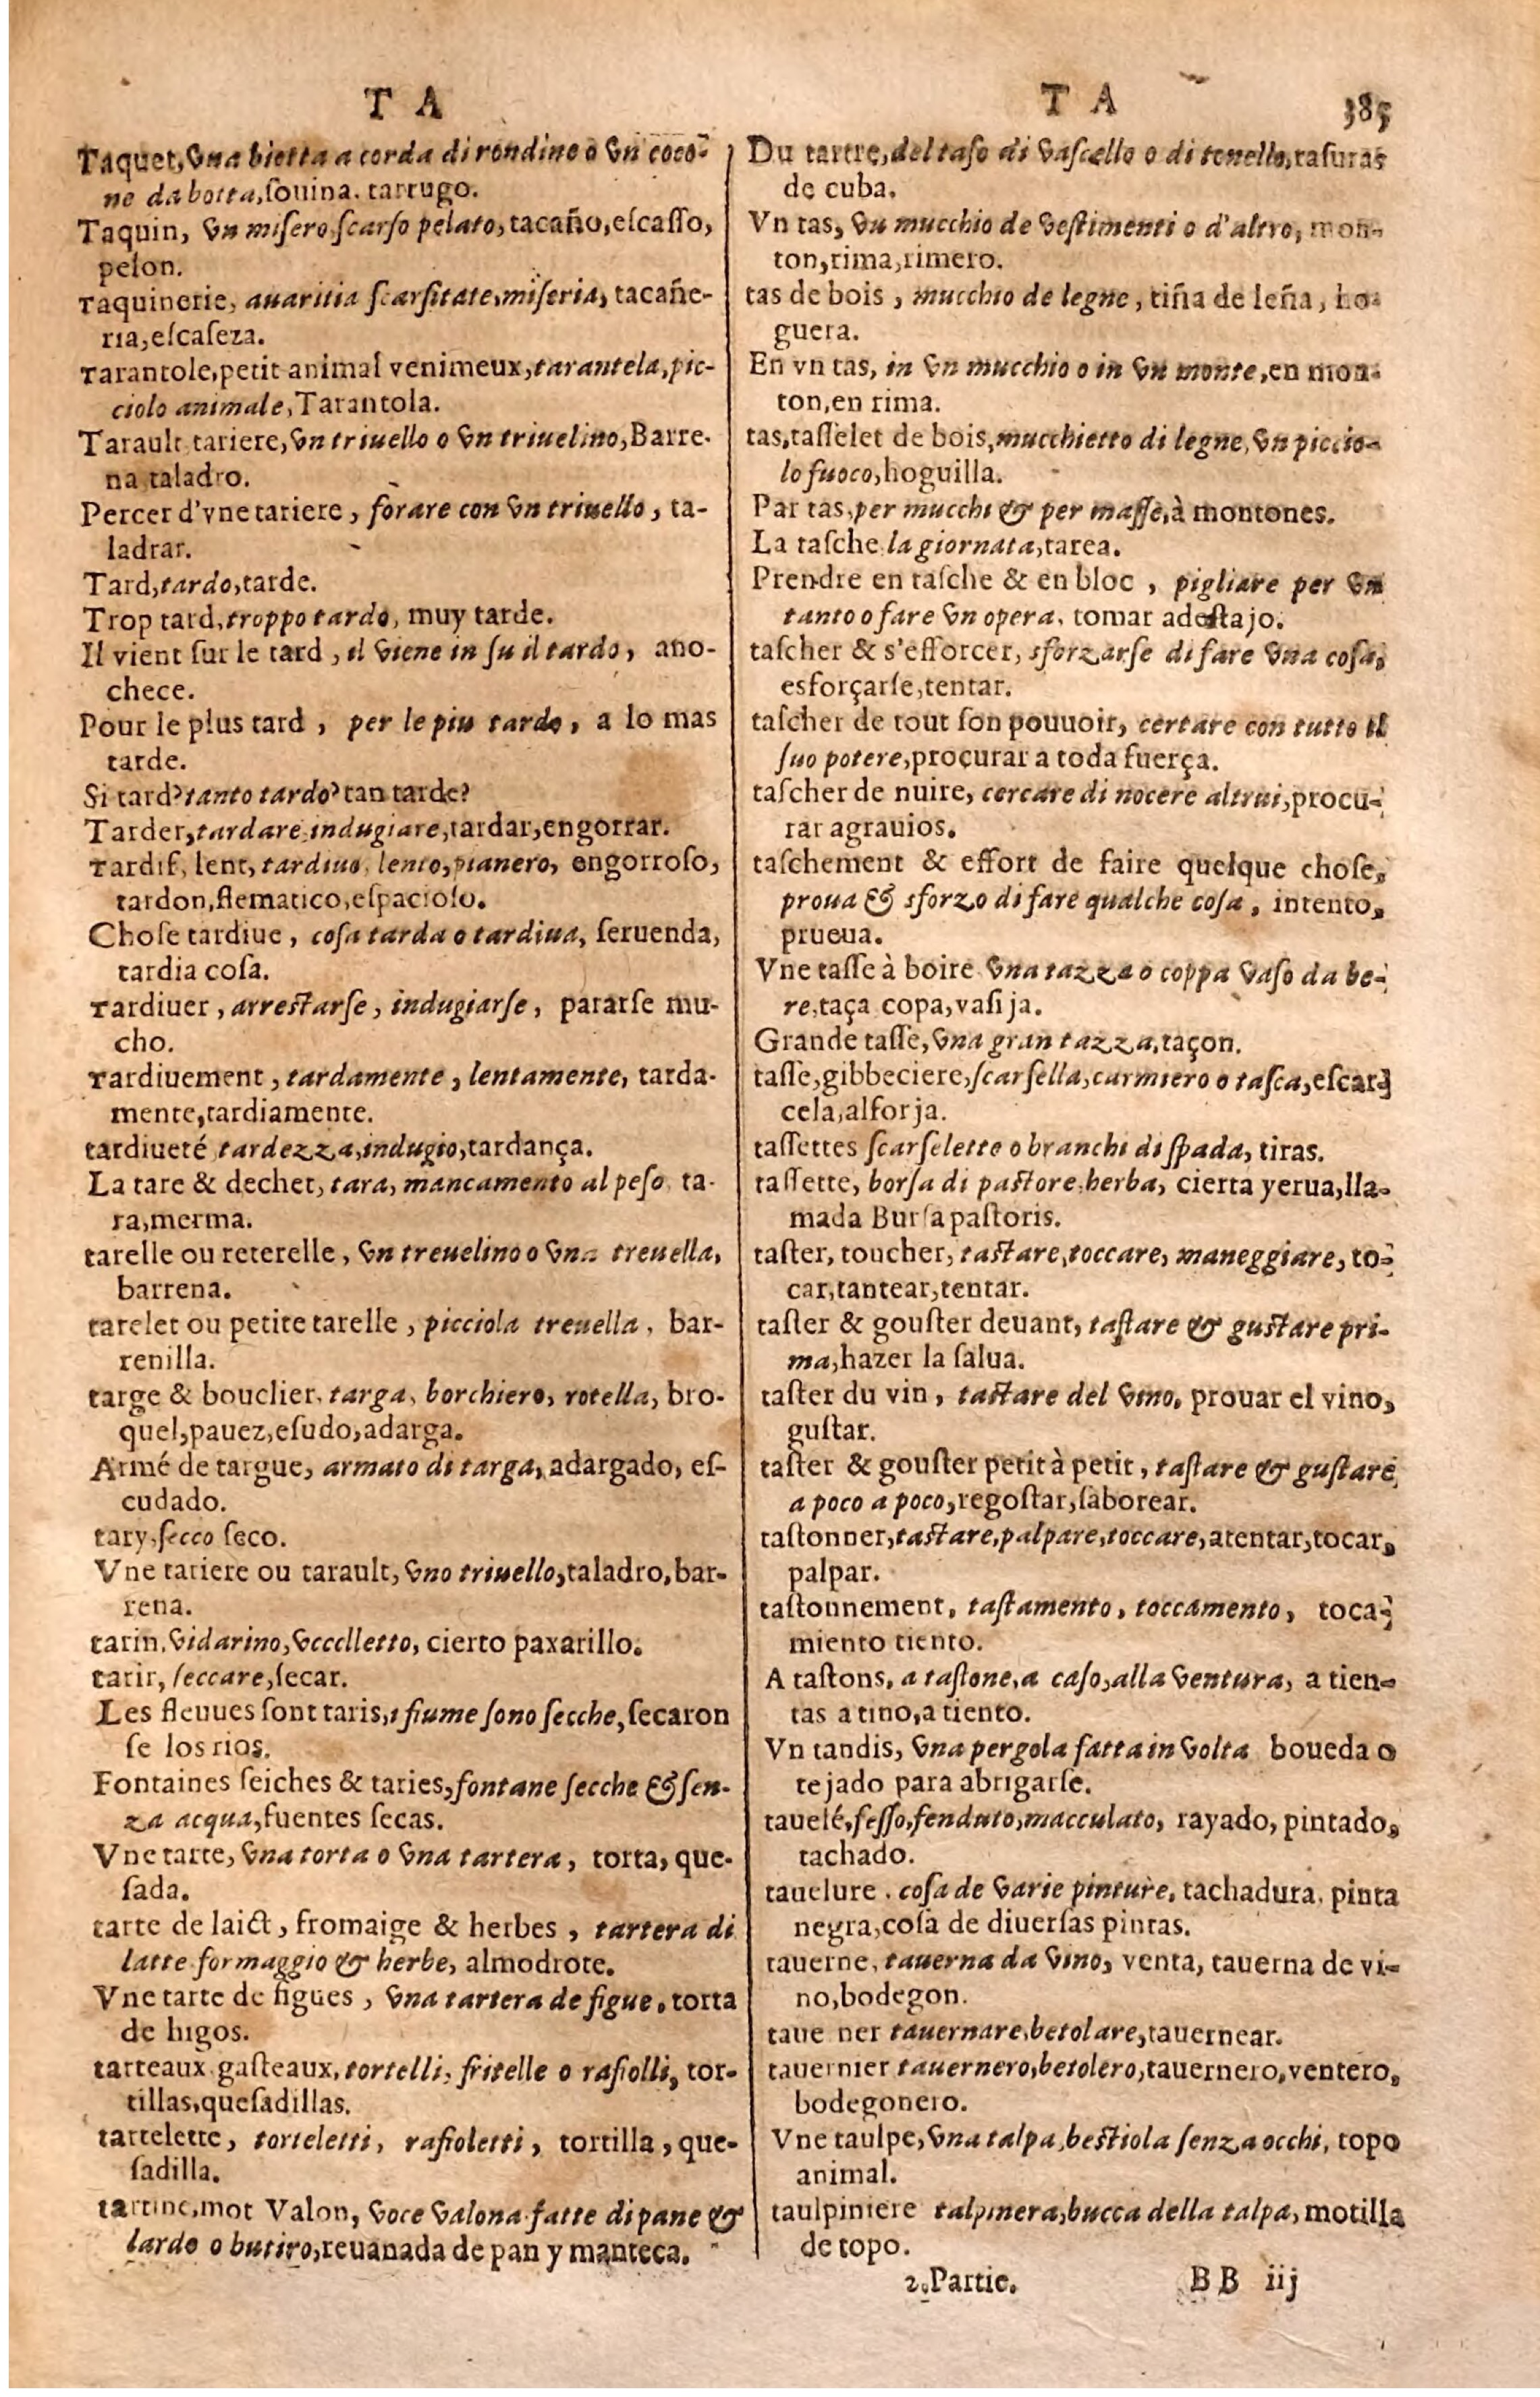 T A
Taquet, vna bietta a corda di rondino o vn coco-
ne da botta, ſouina. tarrugo.
Taquin, vn miſero ſcarſo pelato, tacaño, eſcaſſo,
pelon.
Taquinerie, auaritia ſcarſitate, miſeria, tacañe-
ria, eſcaſeza.
Tarantole, petit animal venimeux, tarantela, pic-
ciolo animale, Tarantola.
Tarault tariere, vn triuello o vn triuelino, Barre-
na taladro.
Percer d'vne tariere, forare con vn triuello, ta-
ladrar.
Tard, tardo, tarde.
Trop tard, troppo tardo, muy tarde.
Il vient ſur le tard, il viene in ſu il tardo, ano-
chece.
Pour le plus tard, per le piu tardo, a lo mas
tarde.
Si tard? tanto tardo? tan tarde?
Tarder, tardare indugiare, tardar, engorrar.
Tardif, lent, tardiuo, lento, pianero, engorroſo,
tardon, flematico, eſpacioſo.
Choſe tardiue, coſa tarda o tardiua, ſeruenda,
tardia coſa.
Tardiuer, arreſtarſe, indugiarſe, pararſe mu-
cho.
Tardiuement, tardamente, lentamente, tarda-
mente, tardiamente.
tardiueté tardezza, indugio, tardança.
La tare & dechet, tara, mancamento al peſo ta-
ra, merma.
tarelle ou reterelle, vn treuelino o vna treuella,
barrena.
tarelet ou petite tarelle, picciola treuella, bar-
renilla.
targe & bouclier, targa, borchiero, rotella, bro-
quel, pauez, eſudo, adarga.
Armé de targue, armato di targa, adargado, eſ-
cudado.
tary, ſecco ſeco.
Vne tariere ou tarault, vno triuello, taladro, bar-
rena.
tarin, vidarino, vccelletto, cierto paxarillo.
tarir, ſeccare, ſecar.
Les fleuues ſont taris, i fiume ſono ſecche, ſecaron
ſe los rios.
Fontaines ſeiches & taries, fontane ſecche & ſen-
za acqua, fuentes ſecas.
Vne tarte, vna torta o vna tartera, torta, que-
ſada.
tarte de laict, fromaige & herbes, tartera di
latte formaggio & herbe, almodrote.
Vne tarte de figues, vna tartera de figue, torta
de higos.
tarteaux gaſteaux, tortelli, fritelle o rafiolli, tor-
tillas, queſadillas.
tartelette, torteletti, rafioletti, tortilla, que-
ſadilla.
tartine, mot Valon, voce valona fatte di pane &
lardo o butiro, reuanada de pan y manteca.
T A 385
Du tartre, del taſo di vaſcello o di tenello, raſuras
de cuba.
Vn tas, vn mucchio de veſtimenti o d'altro, mon-
ton, rima, rimero.
tas de bois, mucchio de legne, tiña de leña, ho-
guera.
En vn tas, in vn mucchio o in vn monte, en mon-
ton, en rima.
tas, taſſelet de bois, mucchietto di legne, vn piccio-
lo fuoco, hoguilla.
Par tas, per mucchi & per maſſe, à montones.
La taſche la giornata, tarea.
Prendre en taſche & en bloc, pigliare per vn
tanto o fare vn opera, tomar adeſtajo.
taſcher & s'efforcer, sforzarſe di fare vna coſa,
esforçarſe, tentar.
taſcher de tout ſon pouuoir, certare con tutto il
ſuo potere, procurar a toda fuerça.
taſcher de nuire, cercare di nocere altrui, procu-
rar agrauios.
taſchement & effort de faire quelque choſe,
proua & sforzo di fare qualche coſa, intento,
prueua.
Vne taſſe à boire vna tazza o coppa vaſo da be-
re, taça copa, vaſija.
Grande taſſe, vna gran tazza, taçon.
taſſe, gibbeciere, ſcarſella, carniero o taſca, eſcar-
cela, alforja.
taſſettes ſcarſelette o branchi di ſpada, tiras.
taſſette, borſa di paſtore herba, cierta yerua, lla-
mada Burſa paſtoris.
taſter, toucher, taſtare, toccare, maneggiare, to-
car, tantear, tentar.
taſter & gouſter deuant, taſtare & guſtare pri-
ma, hazer la ſalua.
taſter du vin, taſtare del vino, prouar el vino,
guſtar.
taſter & gouſter petit à petit, taſtare & guſtare
a poco a poco, regoſtar, ſaborear.
taſtonner, taſtare, palpare, toccare, atentar, tocar,
palpar.
taſtonnement, taſtamento, toccamento, toca-
miento tiento.
A taſtons, a taſtone, a caſo, alla ventura, a tien-
tas a tino, a tiento.
Vn taudis, vna pergola fatta in volta boueda o
tejado para abrigarſe.
tauelé, feſſo, fenduto, macculato, rayado, pintado,
tachado.
tauelure, coſa de varie pinture, tachadura, pinta
negra, coſa de diuerſas pintas.
tauerne, tauerna da vino, venta, tauerna de vi-
no, bodegon.
taue ner tauernare, betolare, tauernear.
tauernier tauernero, betolero, tauernero, ventero,
bodegonero.
Vne taulpe, vna talpa, beſtiola ſenza occhi, topo
animal.
taulpiniere talpinera, bucca della talpa, motilla
de topo.
2. Partie. BB iij